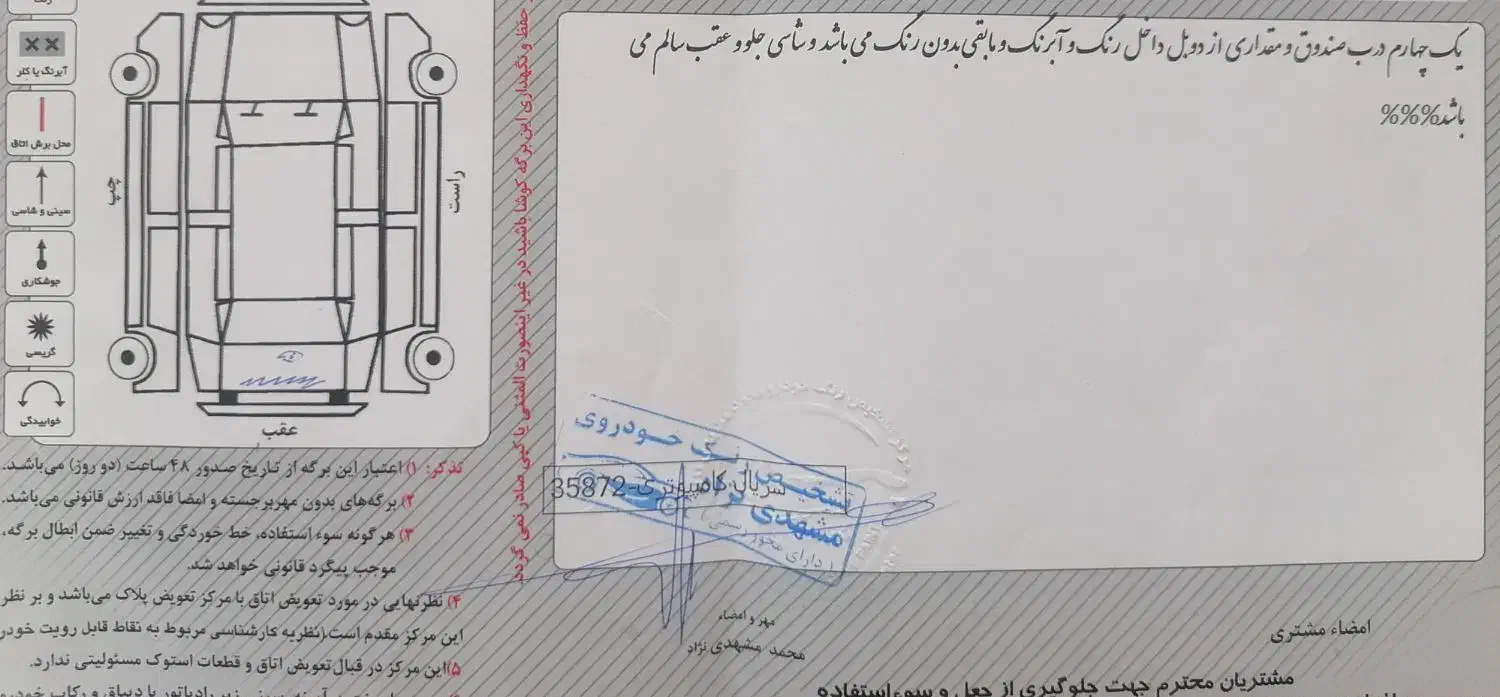 یک چهارم درب صندوق و مقداری از دوبل داخل رنگ و آبرنگ و مابقی بدون رنگ می باشد و شاسی جلو و عقب سالم می
باشد%%%
رنگ
آبرنگ یا کلر
محل برش اتاق
سینی و شاسی
جوشکاری
گریسی
خوابیدگی
چپ
راست
عقب
حفظ و نگهداری این برگه کوشا باشید در غیر اینصورت المثنی یا کپی صادر نمی گردد.
تذکر: ۱) اعتبار این برگه از تاریخ صدور ۴۸ ساعت (دو روز) می‌باشد.
۲) برگه‌های بدون مهر برجسته و امضا فاقد ارزش قانونی می‌باشد.
۳) هر گونه سوء استفاده، خط خوردگی و تغییر ضمن ابطال برگه،
موجب پیگرد قانونی خواهد شد.
۴) نظرنهایی در مورد تعویض اتاق با مرکز تعویض پلاک می‌باشد و بر نظر
این مرکز مقدم است.(نظریه کارشناسی مربوط به نقاط قابل رویت خودر
۵)این مرکز در قبال تعویض اتاق و قطعات استوک مسئولیتی ندارد.
تشخیص رنگ خودروی
مشهدی
(دارای مجوز رسمی)
سریال کامپیوتری-35872
مهر و امضاء
محمد مشهدی نژاد
امضاء مشتری
مشتریان محترم جهت جلوگیری از جعل و سوء استفاده